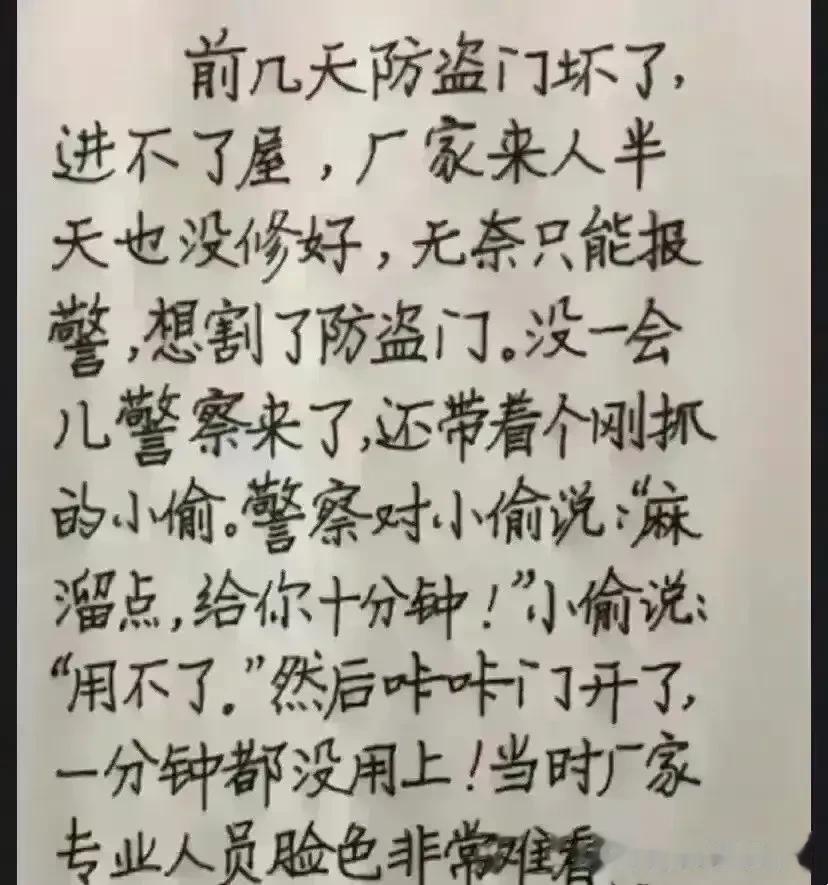 前几天防盗门坏了,
进不了屋,厂家来人半
天也没修好,无奈只能报
警,想割了防盗门。没一会
儿警察来了,还带着个刚抓
的小偷。警察对小偷说:“麻
溜点,给你十分钟!”小偷说:
“用不了。”然后咔咔门开了,
一分钟都没用上!当时厂家
专业人员脸色非常难看